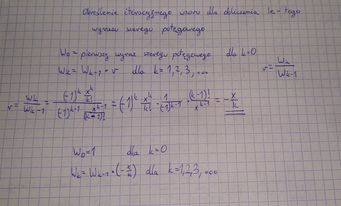 Określenie iteracyjnego wzoru dla obliczenia k-tego
wyrazu szeregu potęgowego
W₀ = pierwszy wyraz szeregu potęgowego dla k=0
Wₖ = Wₖ₋₁ • r dla k = 1,2,3,... r = Wₖ/Wₖ₋₁
r = Wₖ/Wₖ₋₁ = ((-1)^k x^k/k!)/((-1)^(k-1) x^(k-1)/(k-1)!) = (-1)^k x^k/k! · 1/(-1)^(k-1) · (k-1)!/x^(k-1) = -x/k
W₀ = 1 dla k=0
Wₖ = Wₖ₋₁ • (-x/k) dla k=1,2,3,...